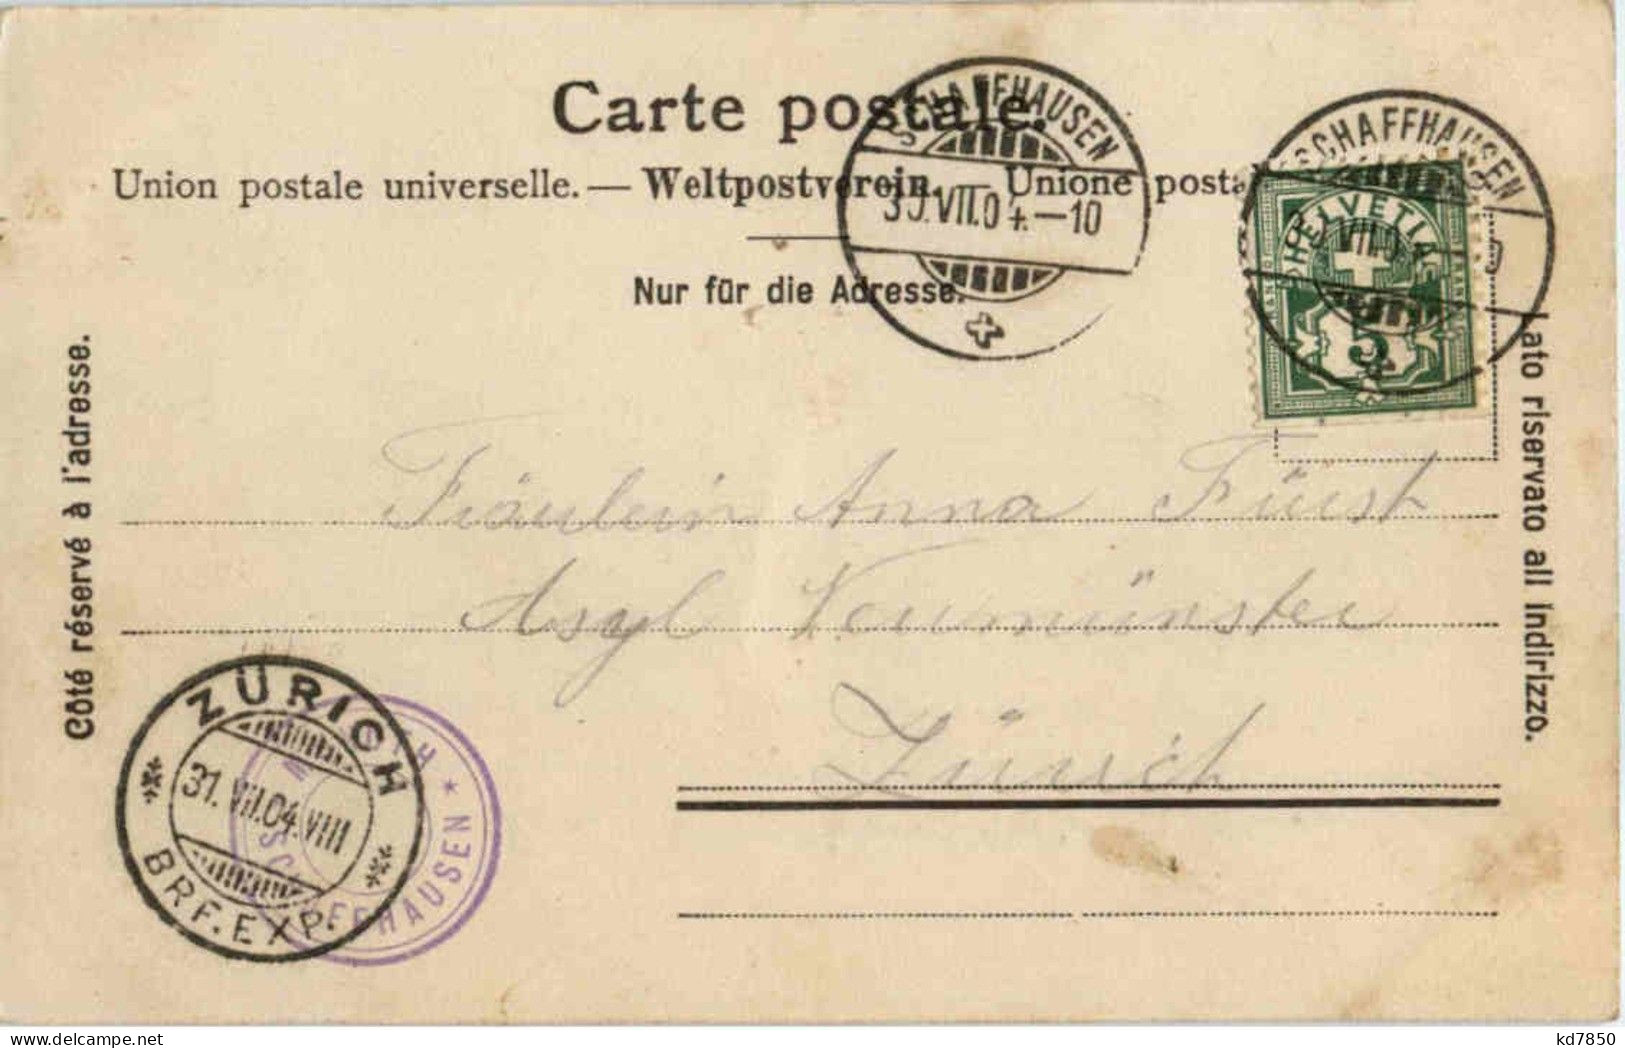 Carte postale.
Union postale universelle. — Weltpostverein. Unione posta
Nur für die Adresse.
SCHAFFHAUSEN
30.VII.04.—10
SCHAFFHAUSEN
VII.0
HELVETIA
5
Côté réservé à l'adresse.
Lato riservato all Indirizzo.
Fräulein Anna Fürst
Asyl Neumünster
Zürich
ZÜRICH
31.VII.04.VIII
BRF.EXP.
HAUSEN
kd7850